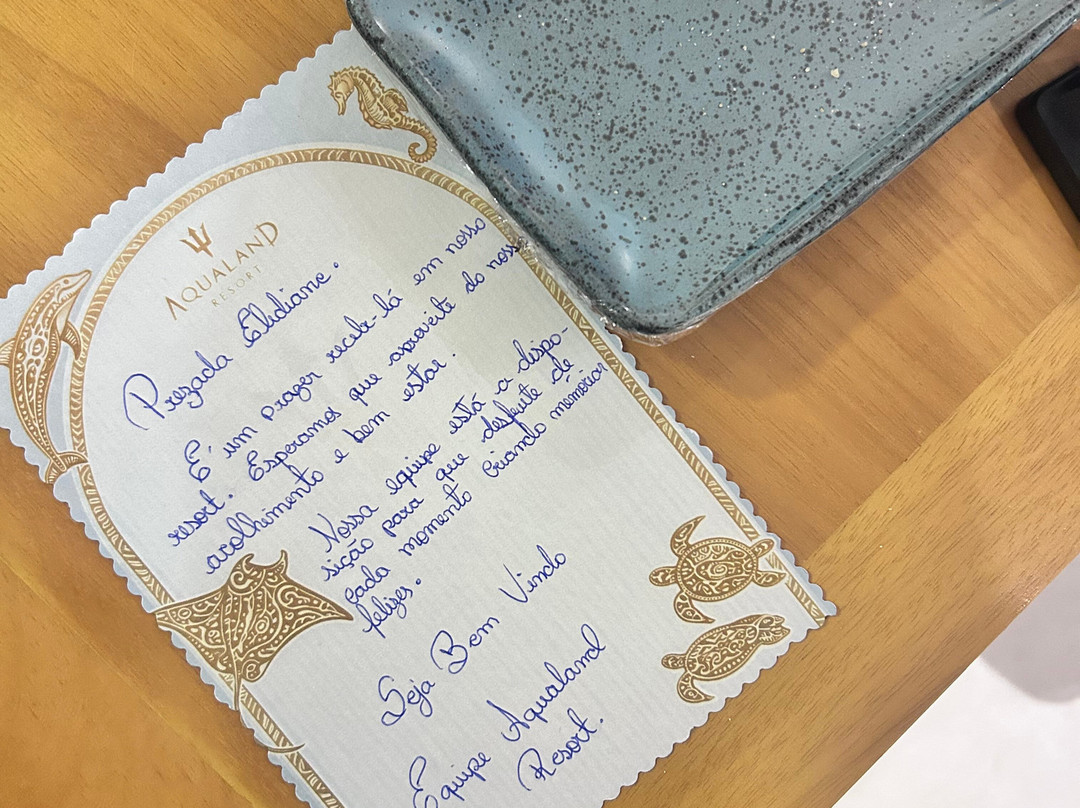 AQUALAND
RESORT
Prezada Elidiane.
É um prazer recebe-lá em nosso
resort. Esperamos que aproveite do noss
acolhimento e bem estar.
Nossa equipe está a dispo-
sição para que desfrute de
cada momento criando memórias
felizes.
Seja Bem Vindo
Equipe Aqualand
Resort.